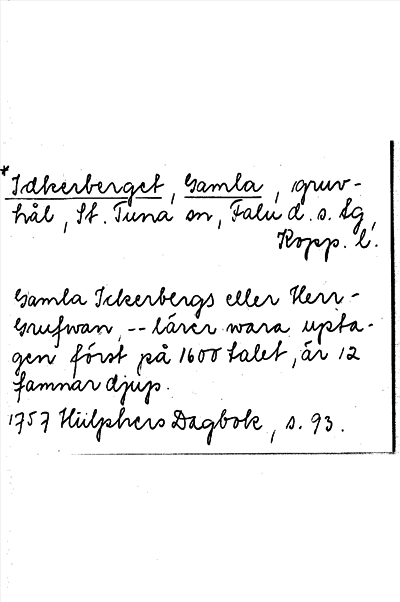 *Idkerberget, Gamla, gruv-
hål, St. Tuna sn, Falu d. s. lg,
Kopp. l.
Gamla Ickerbergs eller Herr-
Grufwan, -- lärer wara upta-
gen först på 1600 talet, är 12
famnar djup.
1757 Hülphers Dagbok, s. 93.